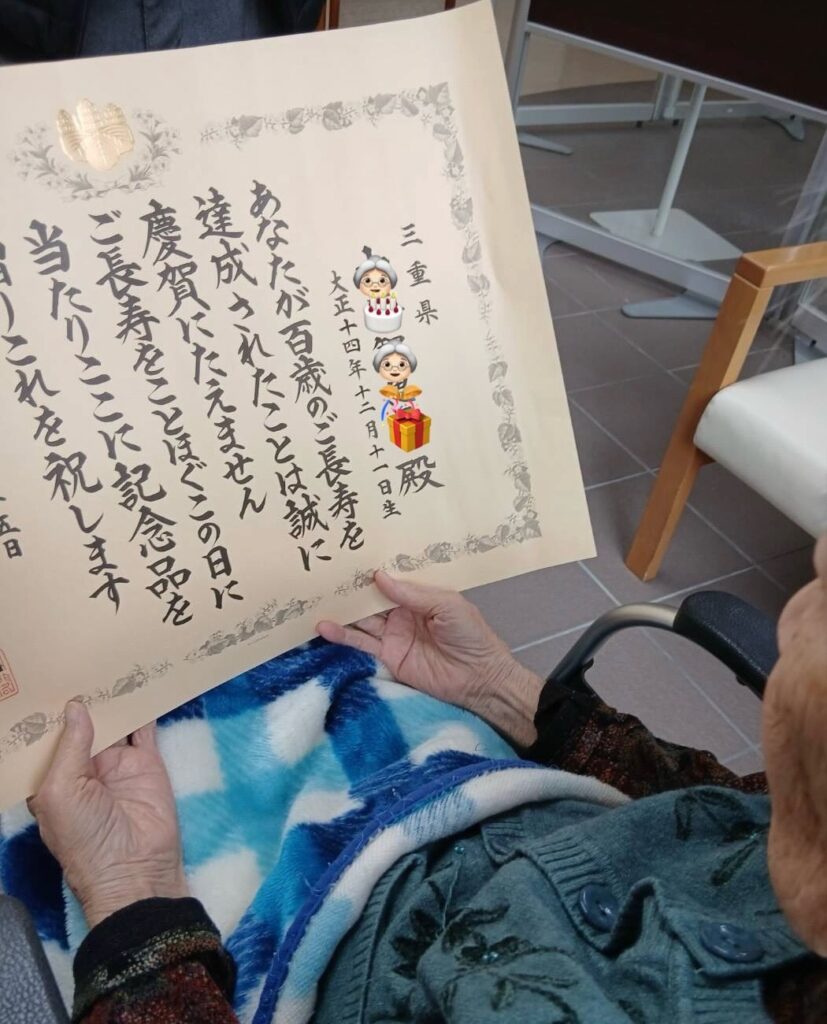 三重県
殿
大正十四年十二月十一日生
あなたが百歳のご長寿を
達成されたことは誠に
慶賀にたえません
ご長寿をことほぐこの日に
当たりここに記念品を
贈りこれを祝します
五日